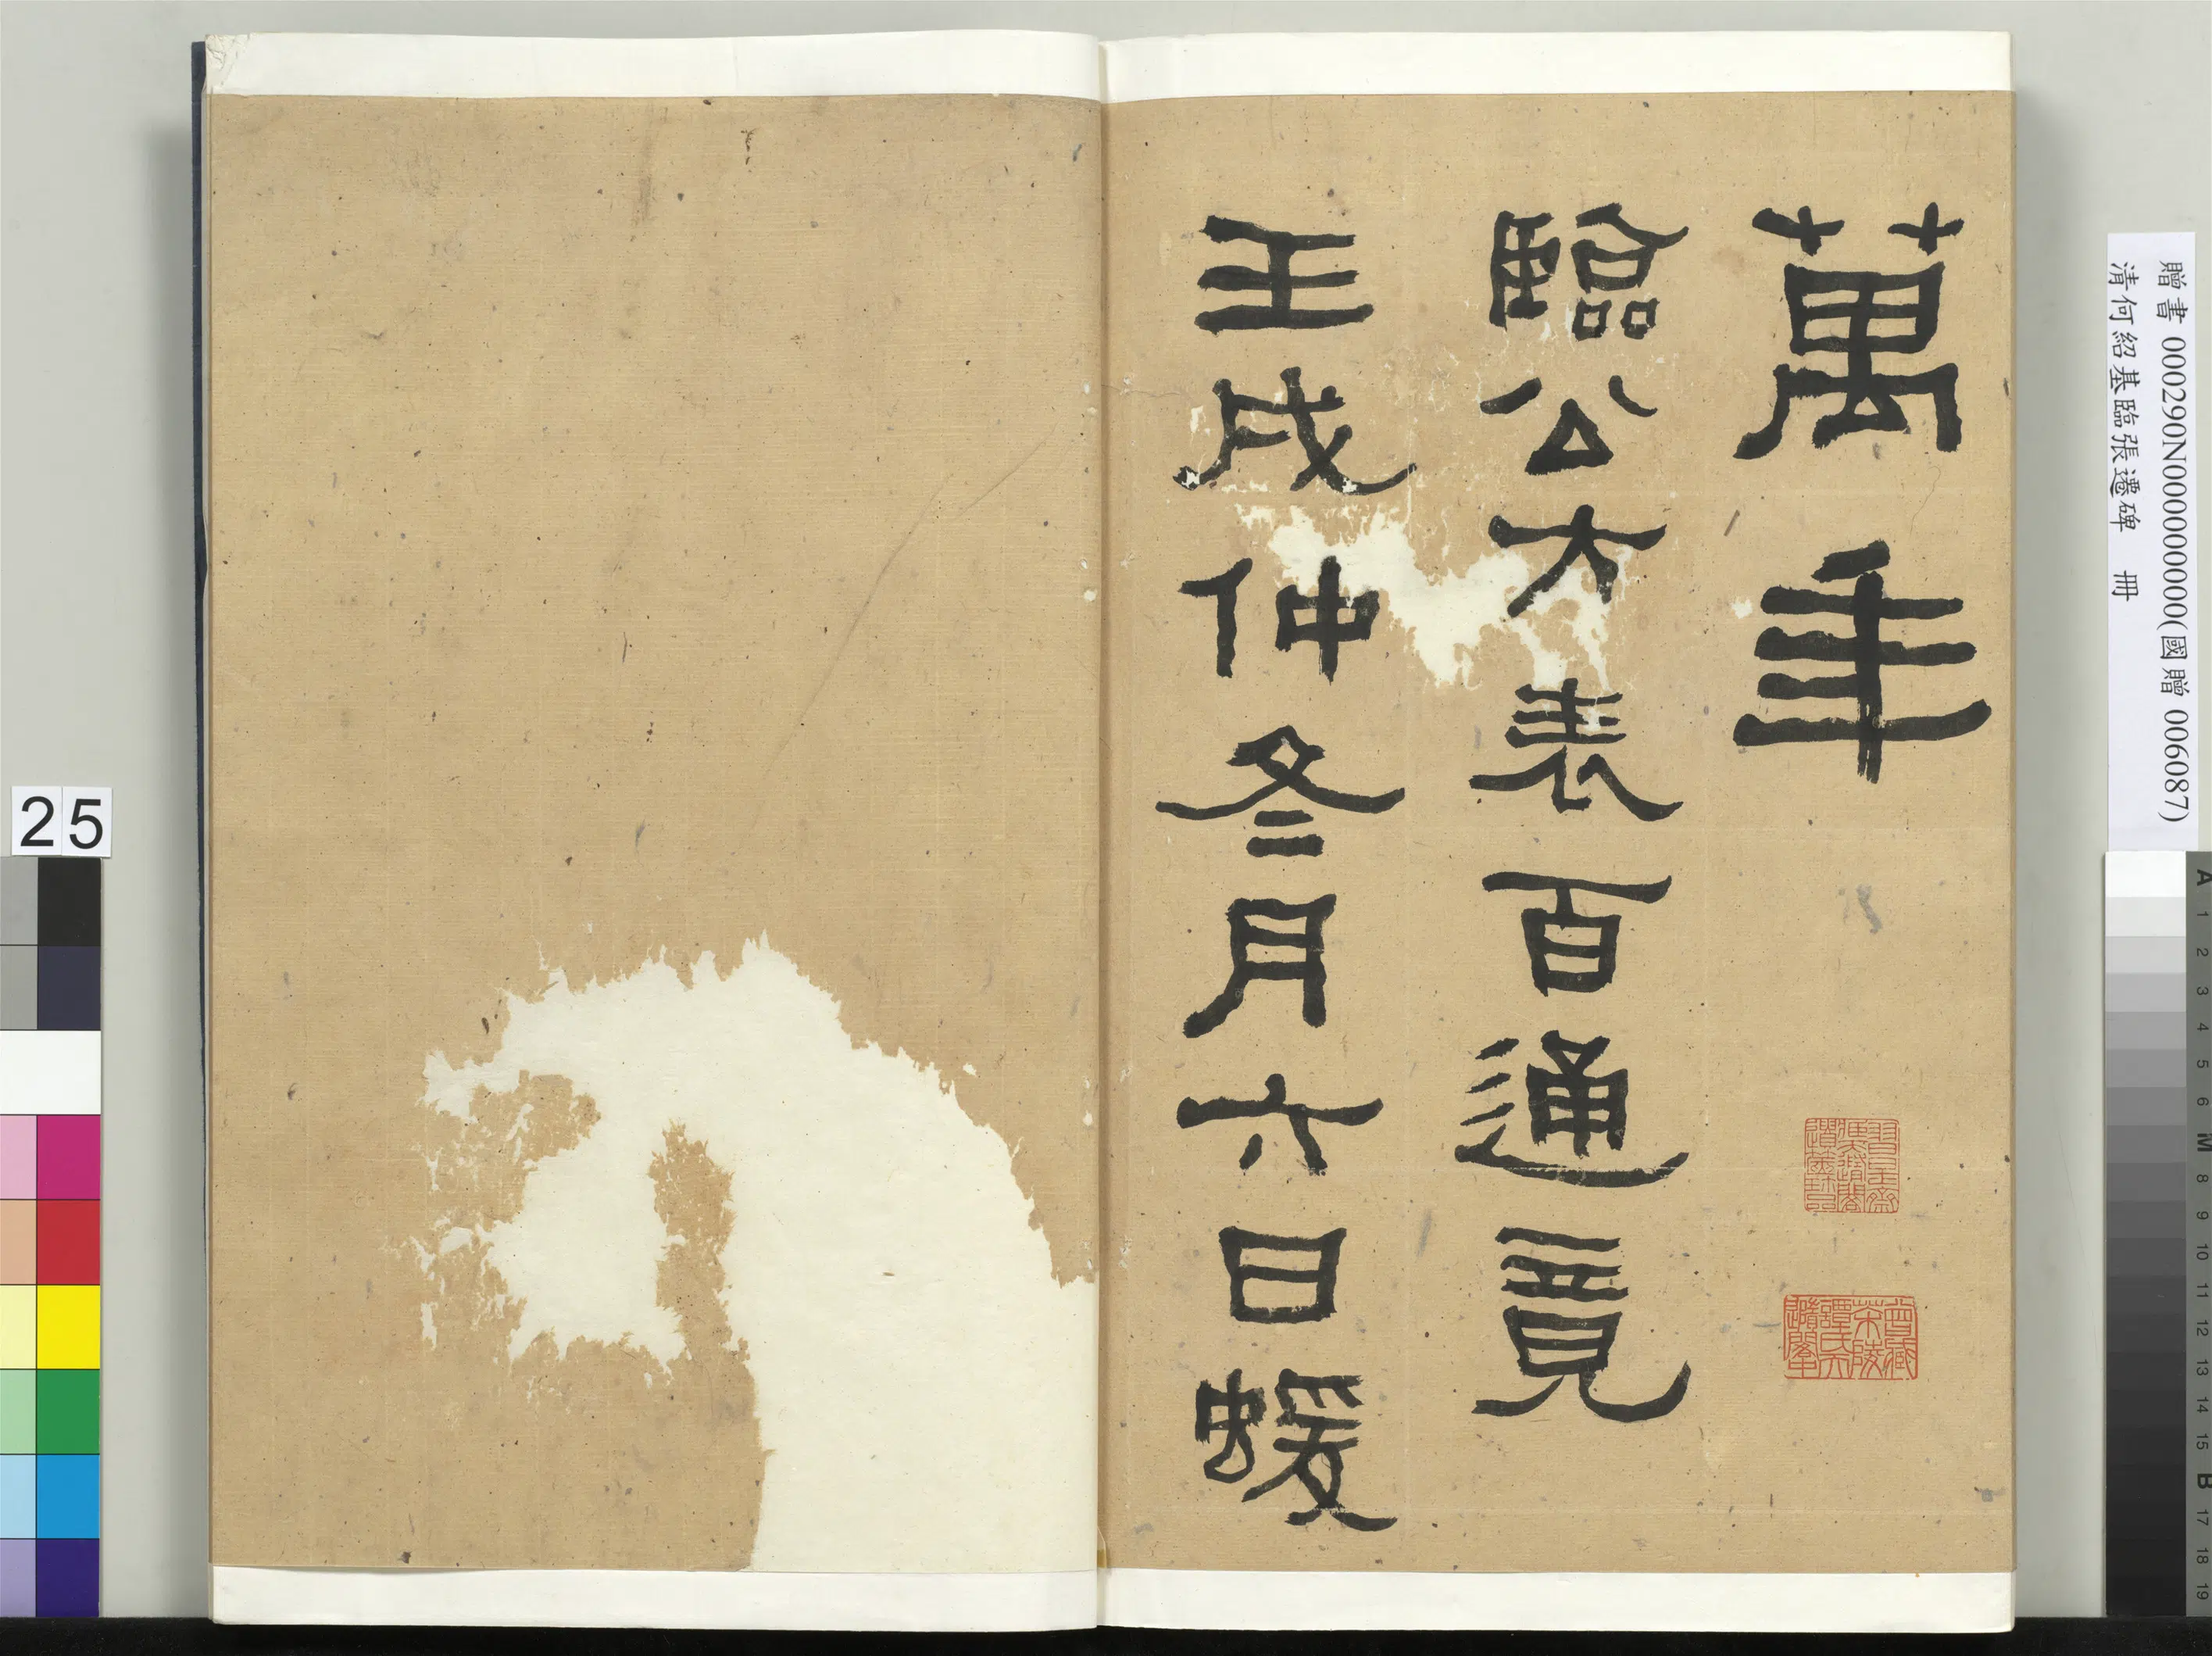 贈書 000290N000000000(國贈 006087)
清何紹基臨張遷碑 冊
萬年
臨公方表百通竟
壬戌仲冬月六日蝯
曾藏茶陵譚氏天隨閣
25
A 1 2 3 4 5 6 M 8 9 10 11 12 13 14 15 B 17 18 19